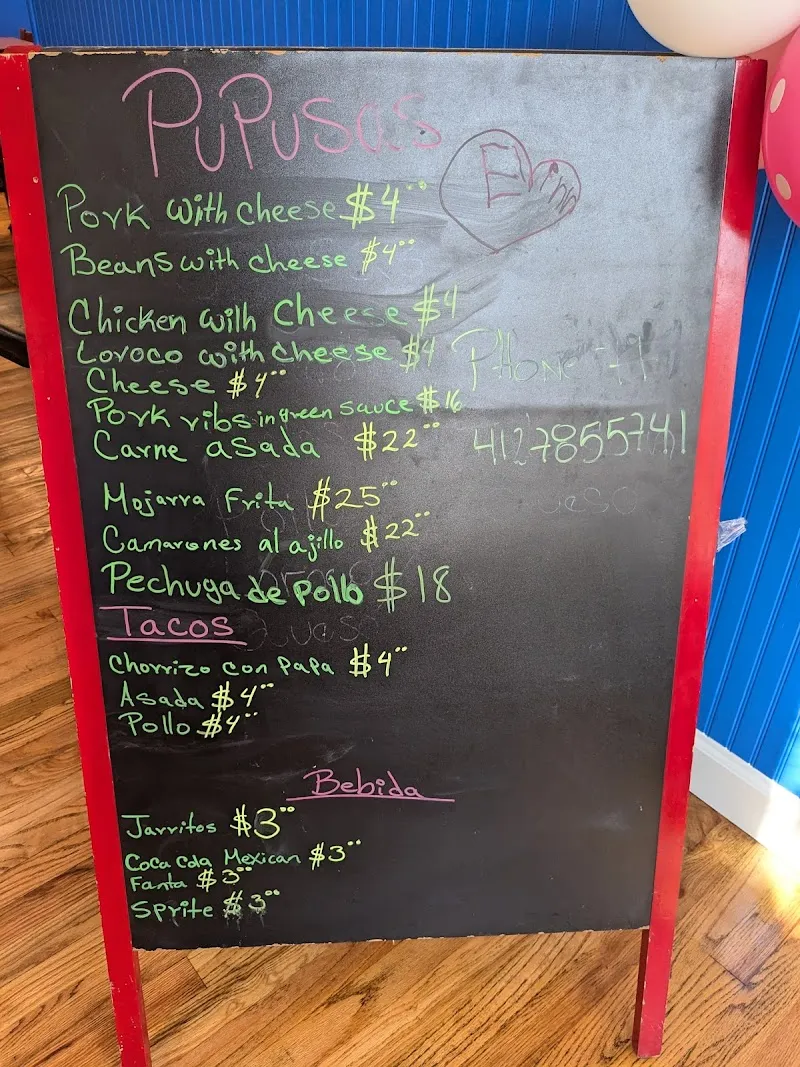 PUPUSAS
Pork with cheese $4°°
Beans with cheese $4°°
Chicken with Cheese $4
Loroco with cheese $4
Cheese $4°°
Pork ribs in green sauce $16
Carne asada $22°°
Mojarra Frita $25°°
Camarones al ajillo $22°°
Pechuga de pollo $18
Tacos
Chorrizo con papa $4°°
Asada $4°°
Pollo $4°°
Bebida
Jarritos $3°°
Coca Cola Mexican $3°°
Fanta $3°°
Sprite $3°°
PHONE #
4127855741